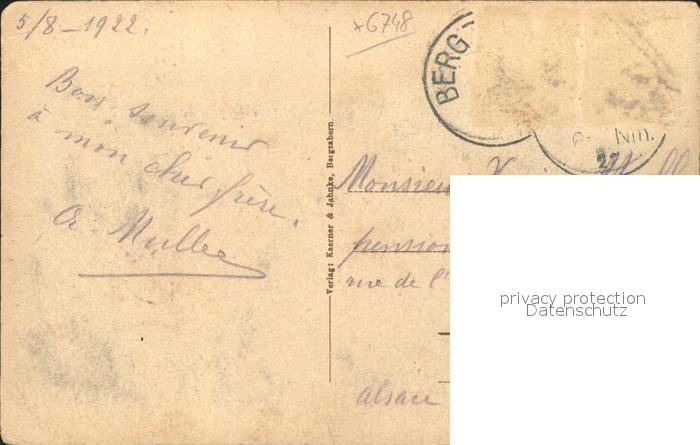 5/8-1922.
x6748
BERG
Bon souvenir
à mon cher frère.
A. Muller
Verlag: Kaerner & Jahnke, Bergzabern.
Monsieur
pension
rue de l'
alsace
privacy protection
Datenschutz